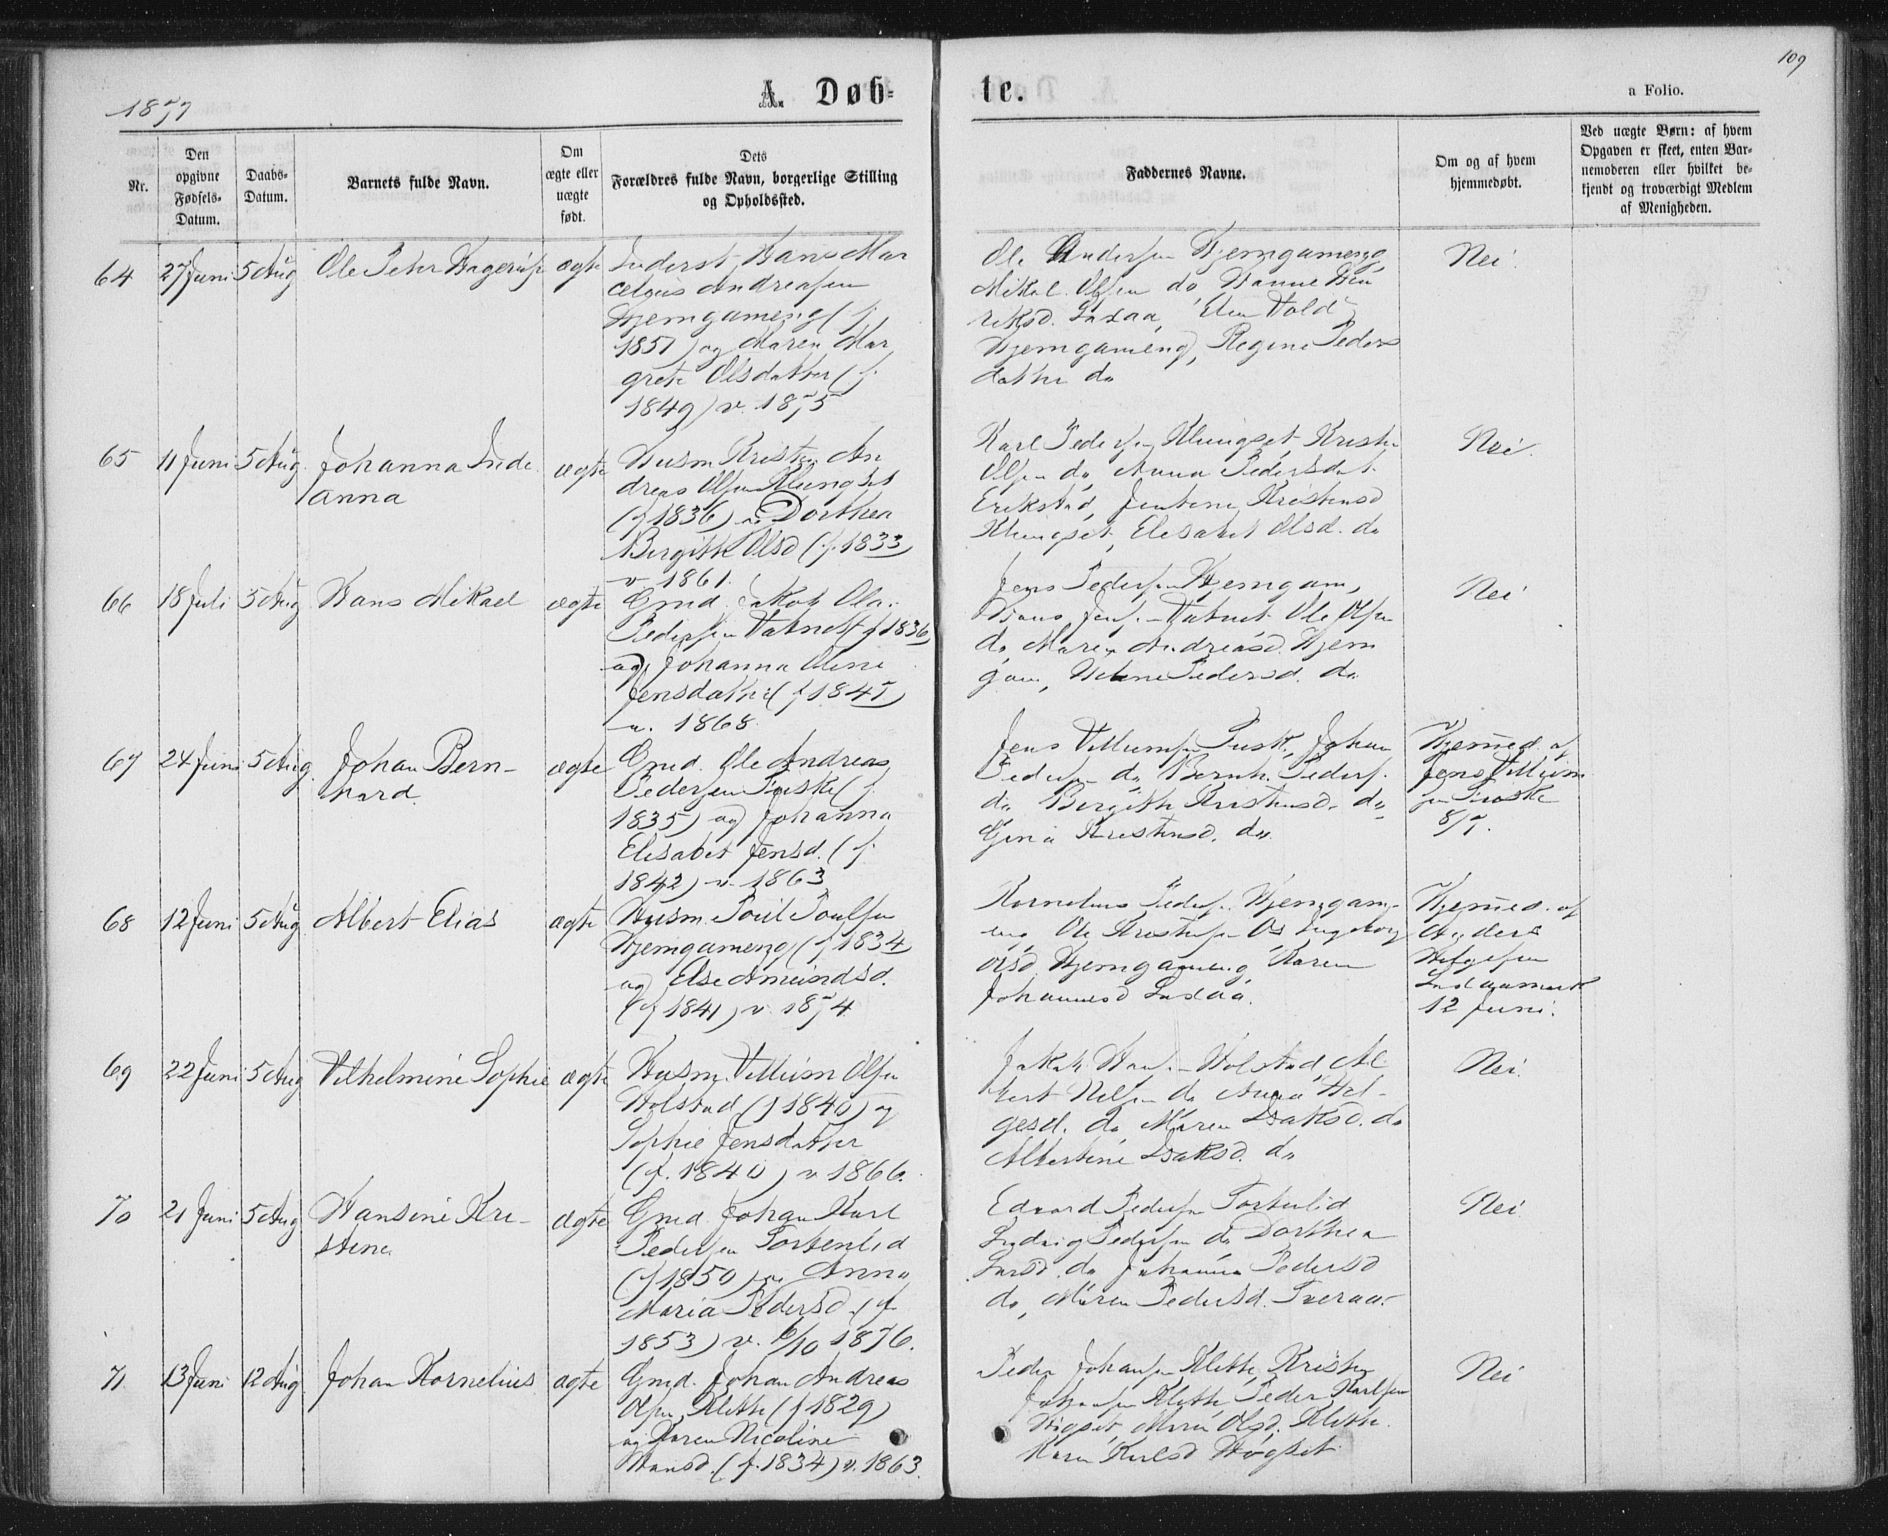 109
1877
A. Døb-
te.
a Folio.
Nr.
Den
opgivne
Fødsels-
Datum.
Daabs-
Datum.
Barnets fulde Navn.
Om
ægte eller
uægte
født.
Dets
Forældres fulde Navn, borgerlige Stilling
og Opholdssted.
Faddernes Navne.
Om og af hvem
hjemmedøbt.
Ved uægte Børn: af hvem
Opgaven er skeet, enten Bar-
nemoderen eller hvilket be-
kjendt og troværdigt Medlem
af Menigheden.
64 27 Juni 5 Aug Ole Peter Hagerup ægte
Inderst Hans Mar
celius Andreasen
Hjemgameng (f.
1851) og Maren Mar
grete Olsdatter (f.
1849) v. 1875
Ole Andersen Hjemgameng
Mikal Olsen do Hanne Hen
riksd. Laxaa, Elen Vold
Hjemgameng, Regine Peders
datter do
Nei.
65 11 Juni 5 Aug. Johanna Inde
anna
ægte
Husm. Kristen An
dreas Olsen Klungset
(f 1836) og Dorthea
Birgitte Olsd (f. 1833)
v 1861.
Karl Pedersen Klungset, Kristen
Olsen do, Anna Pedersdat.
Erikstad, Jentine Kristensd
Klungset, Elesabet Olsd. do
Nei.
66 18 Juli 5 Aug Hans Mikael ægte
Gmd. Jakob Ola
Pedersen Vatnet (f 1836)
og Johanna Oline
Jensdatter (f 1845)
v. 1868.
Jens Pedersen Hjemgam,
Hans Jensen Vatnet Ole Olsen
do Maren Andreasd. Hjem
gam, Pedersd. do
Nei
67 24 Juni 5 Aug. Johan Bern-
hard.
ægte
Gmd. Ole Andreas
Pedersen Fuske (f.
1835) og Johanna
Elisabet Jensd. (f.
1842) v. 1863
Jens Villumsen Fusk, Johan
Pedersen do Bernh. Peders.
do Birgitte Kristensd. do,
Gina Kristensd. do.
Hjemmed. af
Jens Villum
sen Fuske
8/7.
68 12 Juni 5 Aug Albert Elias ægte
Husm. Poul Poulsen
Hjemgameng (f 1834
og Else Amundsd.
(f 1841) v. 1874
Kornelius Peders. Hjemgam-
eng Ole Kristensen Os Ingeborg
Olsd. Hjemgameng Karen
Johannesd Laxaa.
Hjemmed. af
Anders
Helgesen
12 Juni.
69 22 Juni 5 Aug Vilhelmine Sophie ægte
Husm. Villum Olsen
Holstad (f 1840) og
Sophie Jensdatter
(f. 1840) v 1866.
Jakob Hans. Holstad, Al
bert Nilsen do Anna Hel-
gesd. do, Maren Isaksd. do
Albertine Isaksd. do
Nei
70 21 Juni 5 Aug Hansine Kri-
stine
ægte
Gmd. Johan Karl
Pedersen Tortenlid
(f 1850) og Anna
Maria Pedersd. (f
1853) v. 6/10 1876.
Edvard Pedersen Tortenlid
Ludvig Pedersen do Dorthea
Larsd. do Johanna Pedersd
do, Maren Pedersd. Tveraa.
Nei
71 13 Juni 12 Aug Johan Kornelius ægte
Gmd. Johan Andreas
Olsen Klette (f 1829)
og Karen Nicoline
Hansd. (f. 1834) v. 1863.
Peder Johansen Klette, Kristen
Johansen Klette, Peder Karlsen
Høgset, Maren Olsd. Klette.
Karen Karlsd Høgset
Nei